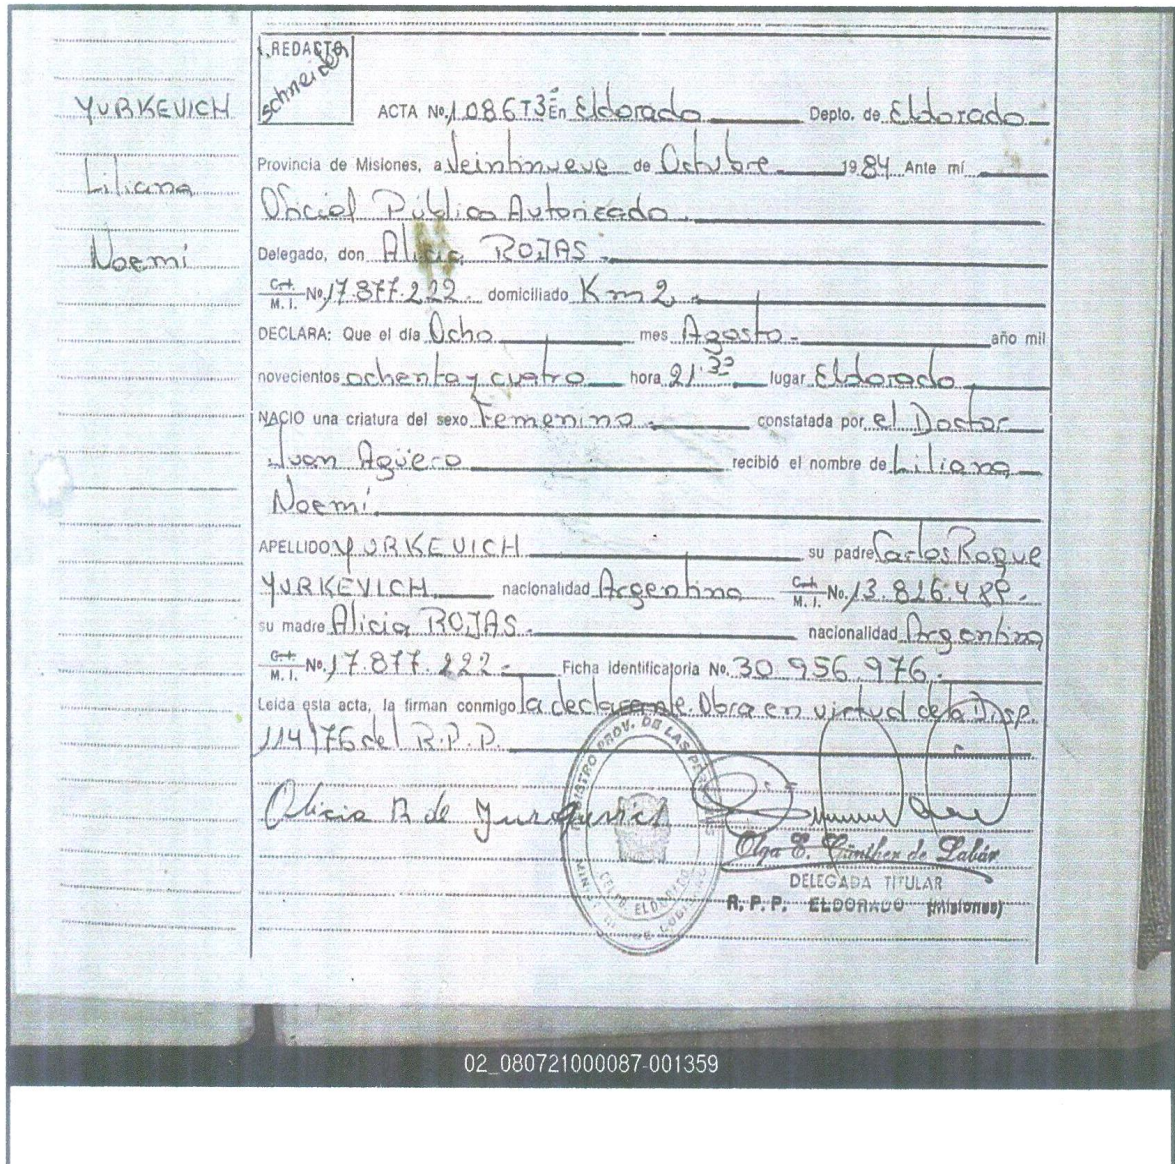 REDACTO
Schneider
YURKEVICH
Liliana
Noemí
ACTA No. 1086T3 En Eldorado Depto. de Eldorado
Provincia de Misiones, a Veintinueve de Octubre 1984 Ante mí
Oficial Público Autorizado.
Delegado, don Alicia ROJAS.
C.I. M.I. No. 17.877.222. domiciliado Km 2.
DECLARA: Que el día Ocho mes Agosto. año mil
novecientos ochenta y cuatro hora 21.30 lugar Eldorado
NACIO una criatura del sexo Femenino. constatada por el Doctor
Juan Agüero recibió el nombre de Liliana
Noemí.
APELLIDO YURKEVICH su padre Carlos Roque
YURKEVICH nacionalidad Argentina M.I. No. 13.816.48
su madre Alicia ROJAS. nacionalidad Argentina
M.I. No. 17.877.222. Ficha identificatoria No. 30.956.976.
Leída esta acta, la firman conmigo la declarante. Obra en virtud de la Disp.
114/76 del R.P.P.
Alicia R de
REGISTRO PROV. DE LAS PERSONAS
ELDORADO
Olga E. Günther de Labár
DELEGADA TITULAR
R. P. P. ELDORADO (Misiones)
02_080721000087-001359